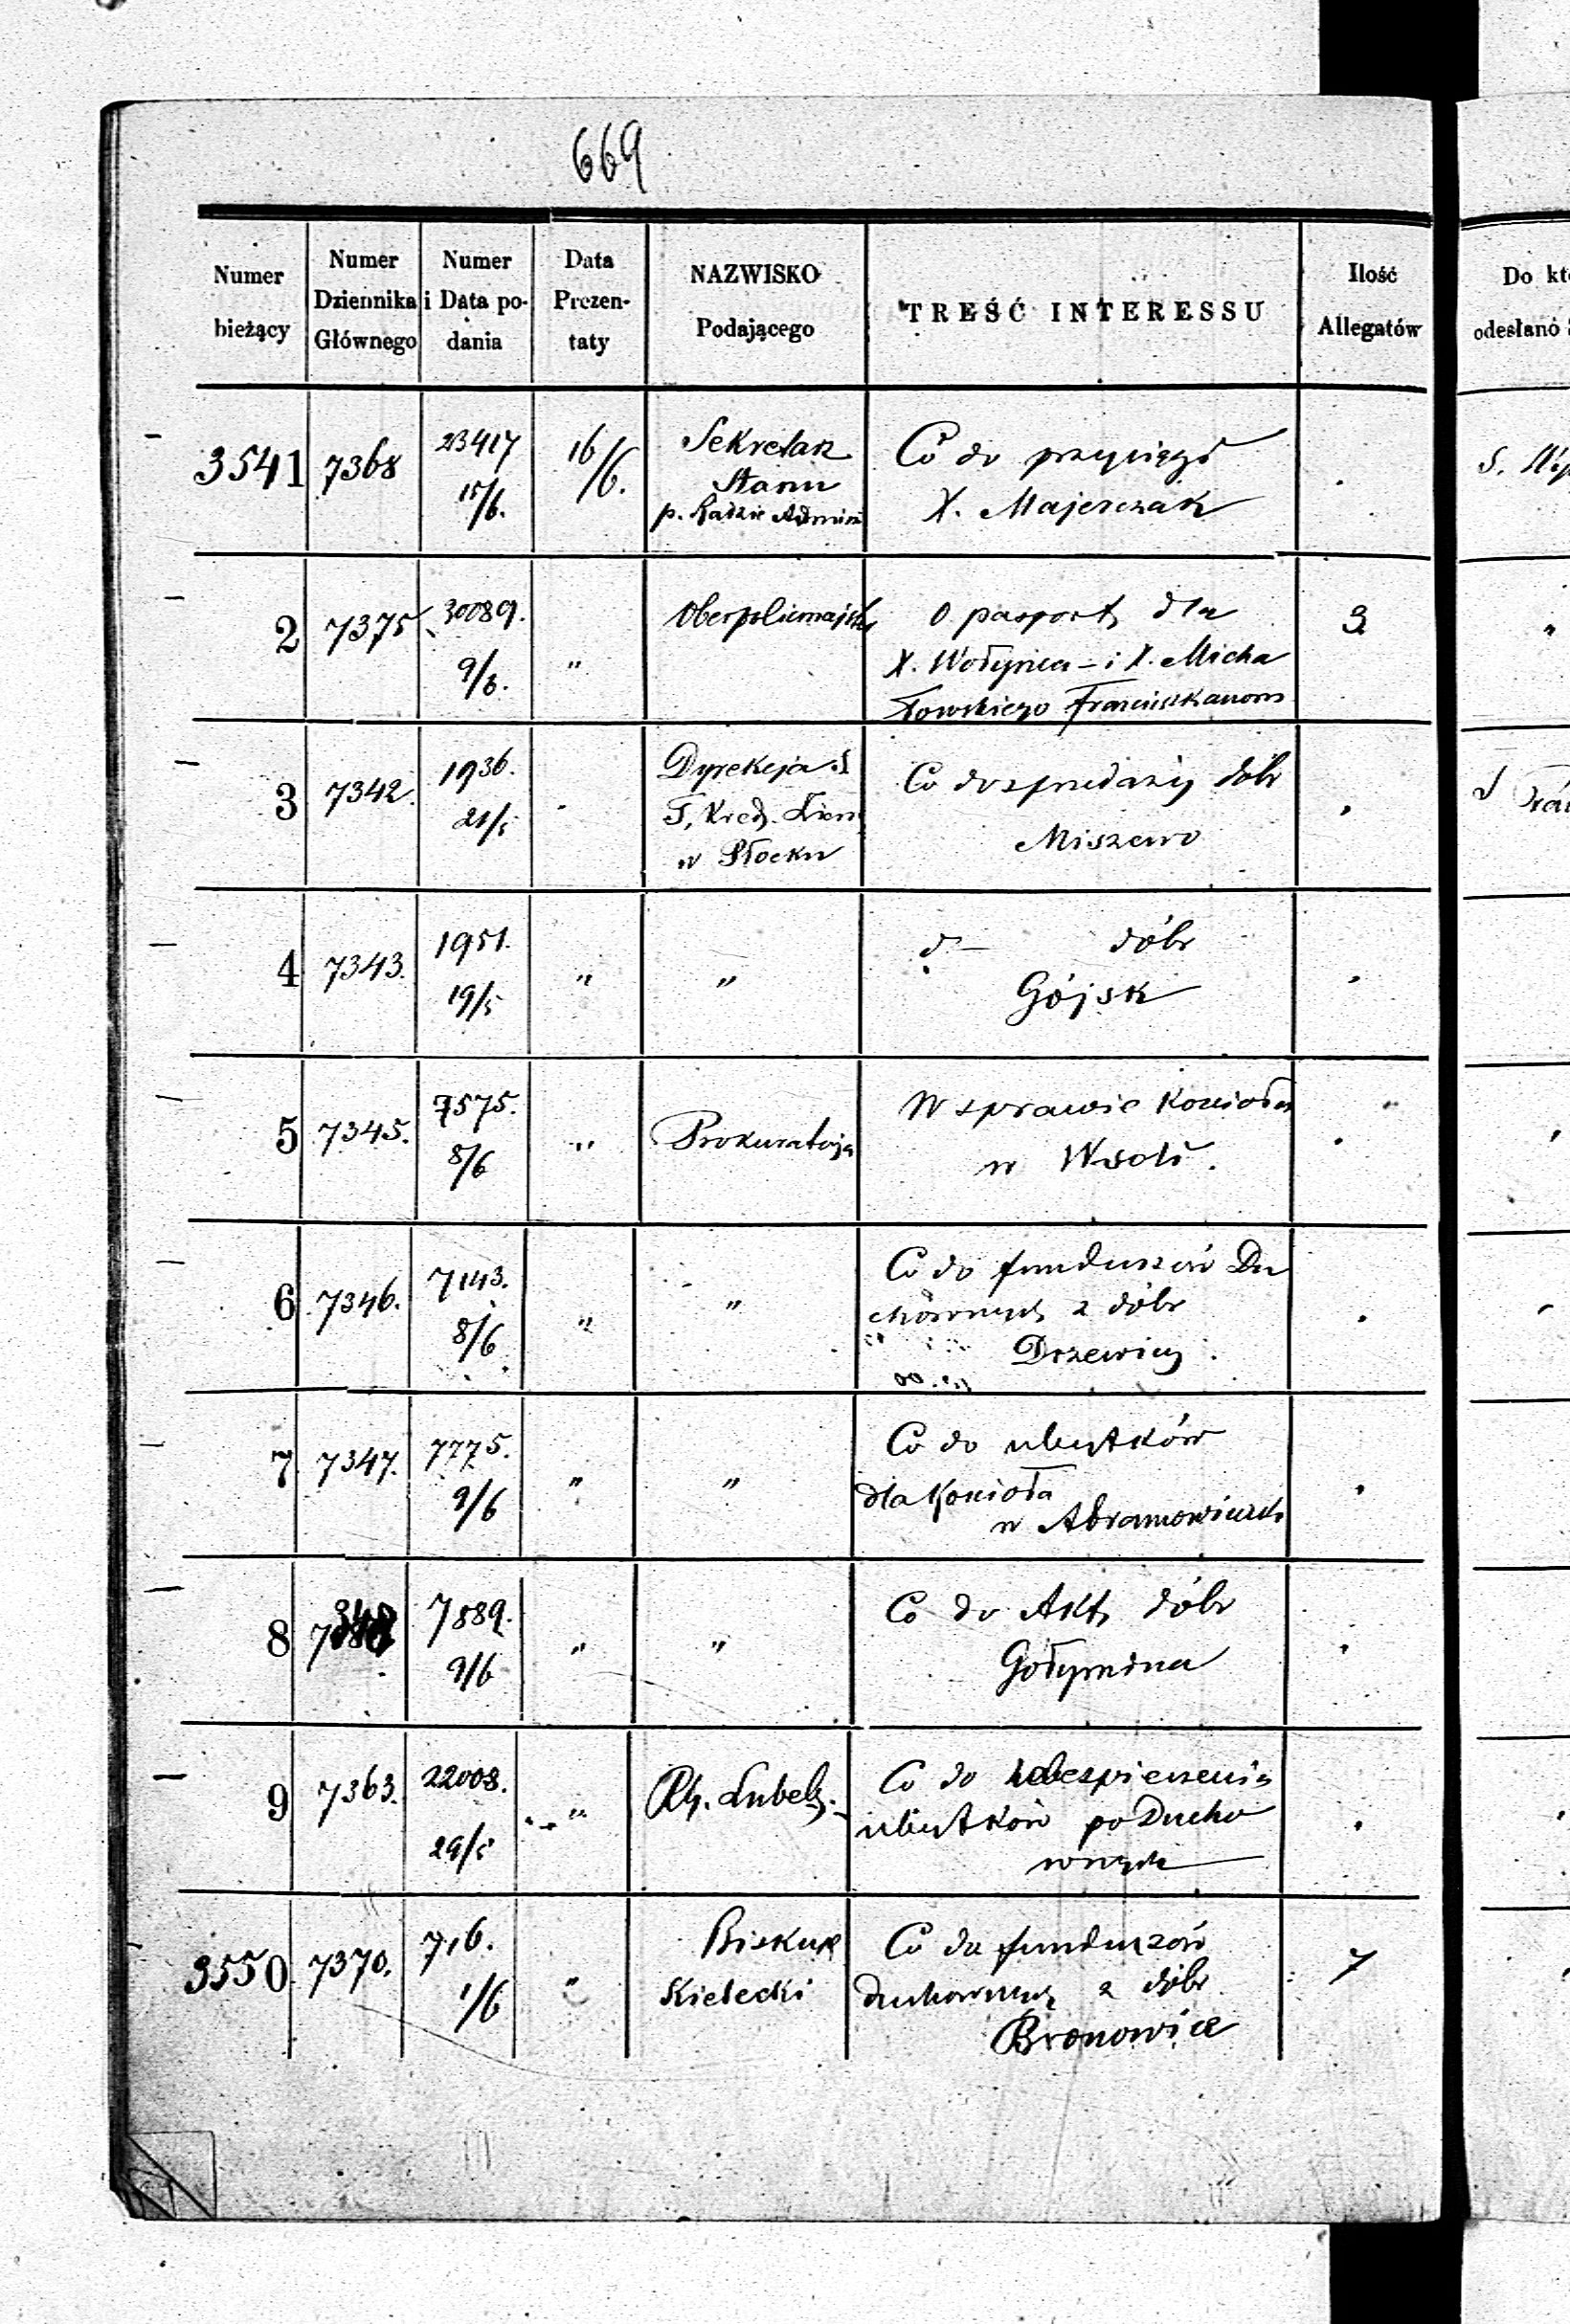 669
Numer bieżący
Numer Dziennika Głównego
Numer i Data podania
Data Prezentaty
NAZWISKO Podającego
TREŚĆ INTERESSU
Ilość Allegatów
Do kt
odesłano
3541 7368 23417 16/6. Sekretarz Co do przysięgi
15/6. Stanu X. Majerczak
p. Radzie Admini
S.
2 7375 30089. Oberpolicmajster O pasport dla 3
9/6. " X. Wołyńca - i X. Micha
łowskiego Franciszkanow
"
3 7342. 1936. Dyrekcja S. Co do sprzedaży dóbr
21/5 T. Kred. Ziem Miszewo
w Płocku
4 7343. 1951. " " d:- dóbr
19/5 Gójsk
5 7345. 7575. " Prokuratorja W sprawie Kościoła
8/6 w Woli.
6 7346. 7143. " " Co do funduszów Du
8/6 chownych z dóbr
Drzewicy.
7 7347. 7775. " " Co do ubytków
9/6 dla Kościoła
w Abramowicach
8 7348 7889. " " Co do Akt dóbr
9/6 Gołymina
9 7363. 22008. " Rz. Lubels. Co do ubezpieczenia
29/5 ubytków po Ducho
wnych
3550 7370. 716. " Biskup Co do funduszów 7
1/6 Kielecki duchownych z dóbr
Bronowice